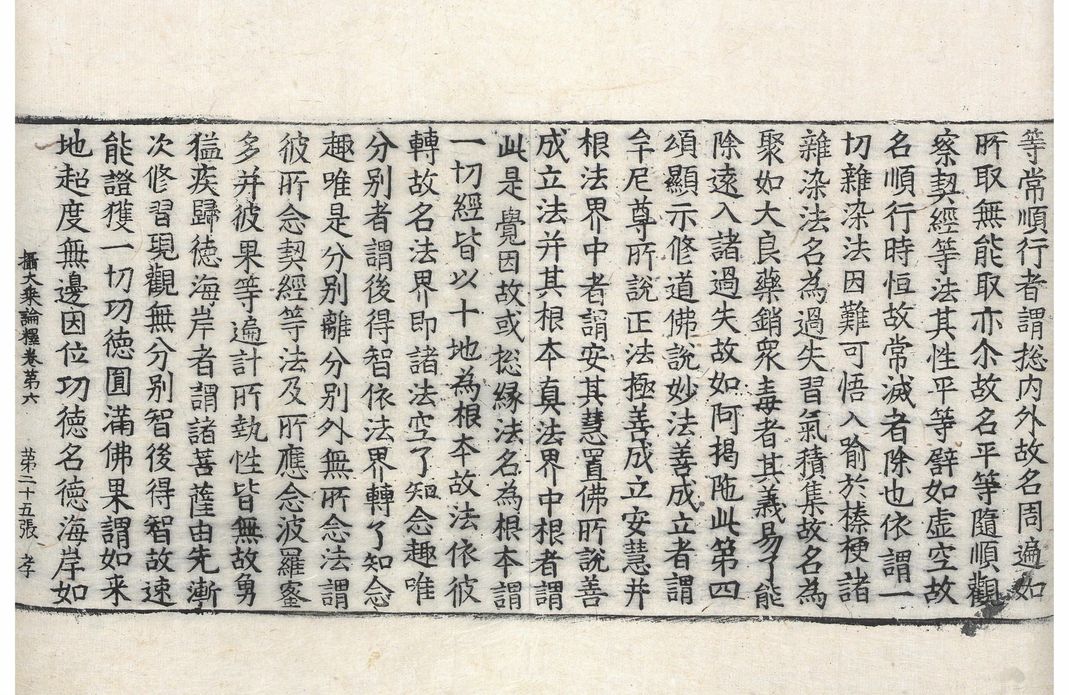 等常順行者謂捴内外故名周遍如
所取無能取亦尒故名平等隨順觀
察契經等法其性平等譬如虛空故
名順行時恒故常滅者除也依謂一
切雜染法因難可悟入喻於榛梗諸
雜染法名為過失習氣積集故名為
聚如大良藥銷衆毒者其義易了能
除遠入諸過失故如阿揭陁此第四
頌顯示修道佛說妙法善成立者謂
牟尼尊所說正法極善成立安慧并
根法界中者謂安其慧置佛所說善
成立法并其根本真法界中根者謂
此是覺因故或捴緣法名為根本謂
一切經皆以十地為根本故法依彼
轉故名法界即諸法空了知念趣唯
分别者謂後得智依法界轉了知念
趣唯是分别離分别外無所念法謂
彼所念契經等法及所應念波羅蜜
多并彼果等遍計所執性皆無故勇
猛疾歸德海岸者謂諸菩薩由先漸
次修習現觀無分别智後得智故速
能證獲一切功德圓滿佛果謂如来
地超度無邊因位功德名德海岸如
攝大乘論釋卷第六　第二十五張　孝